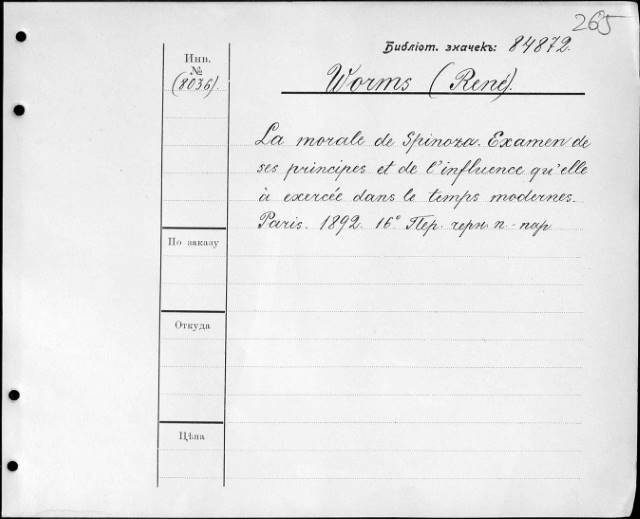 265
Библіот. значекъ: 84872.
Инв.
№
(8036).
Worms (René).
La morale de Spinoza. Examen de
ses principes et de l'influence qu'elle
à exercée dans le temps modernes.
Paris. 1892. 16° Пер. черн. п.-пар
По заказу
Откуда
Цѣна